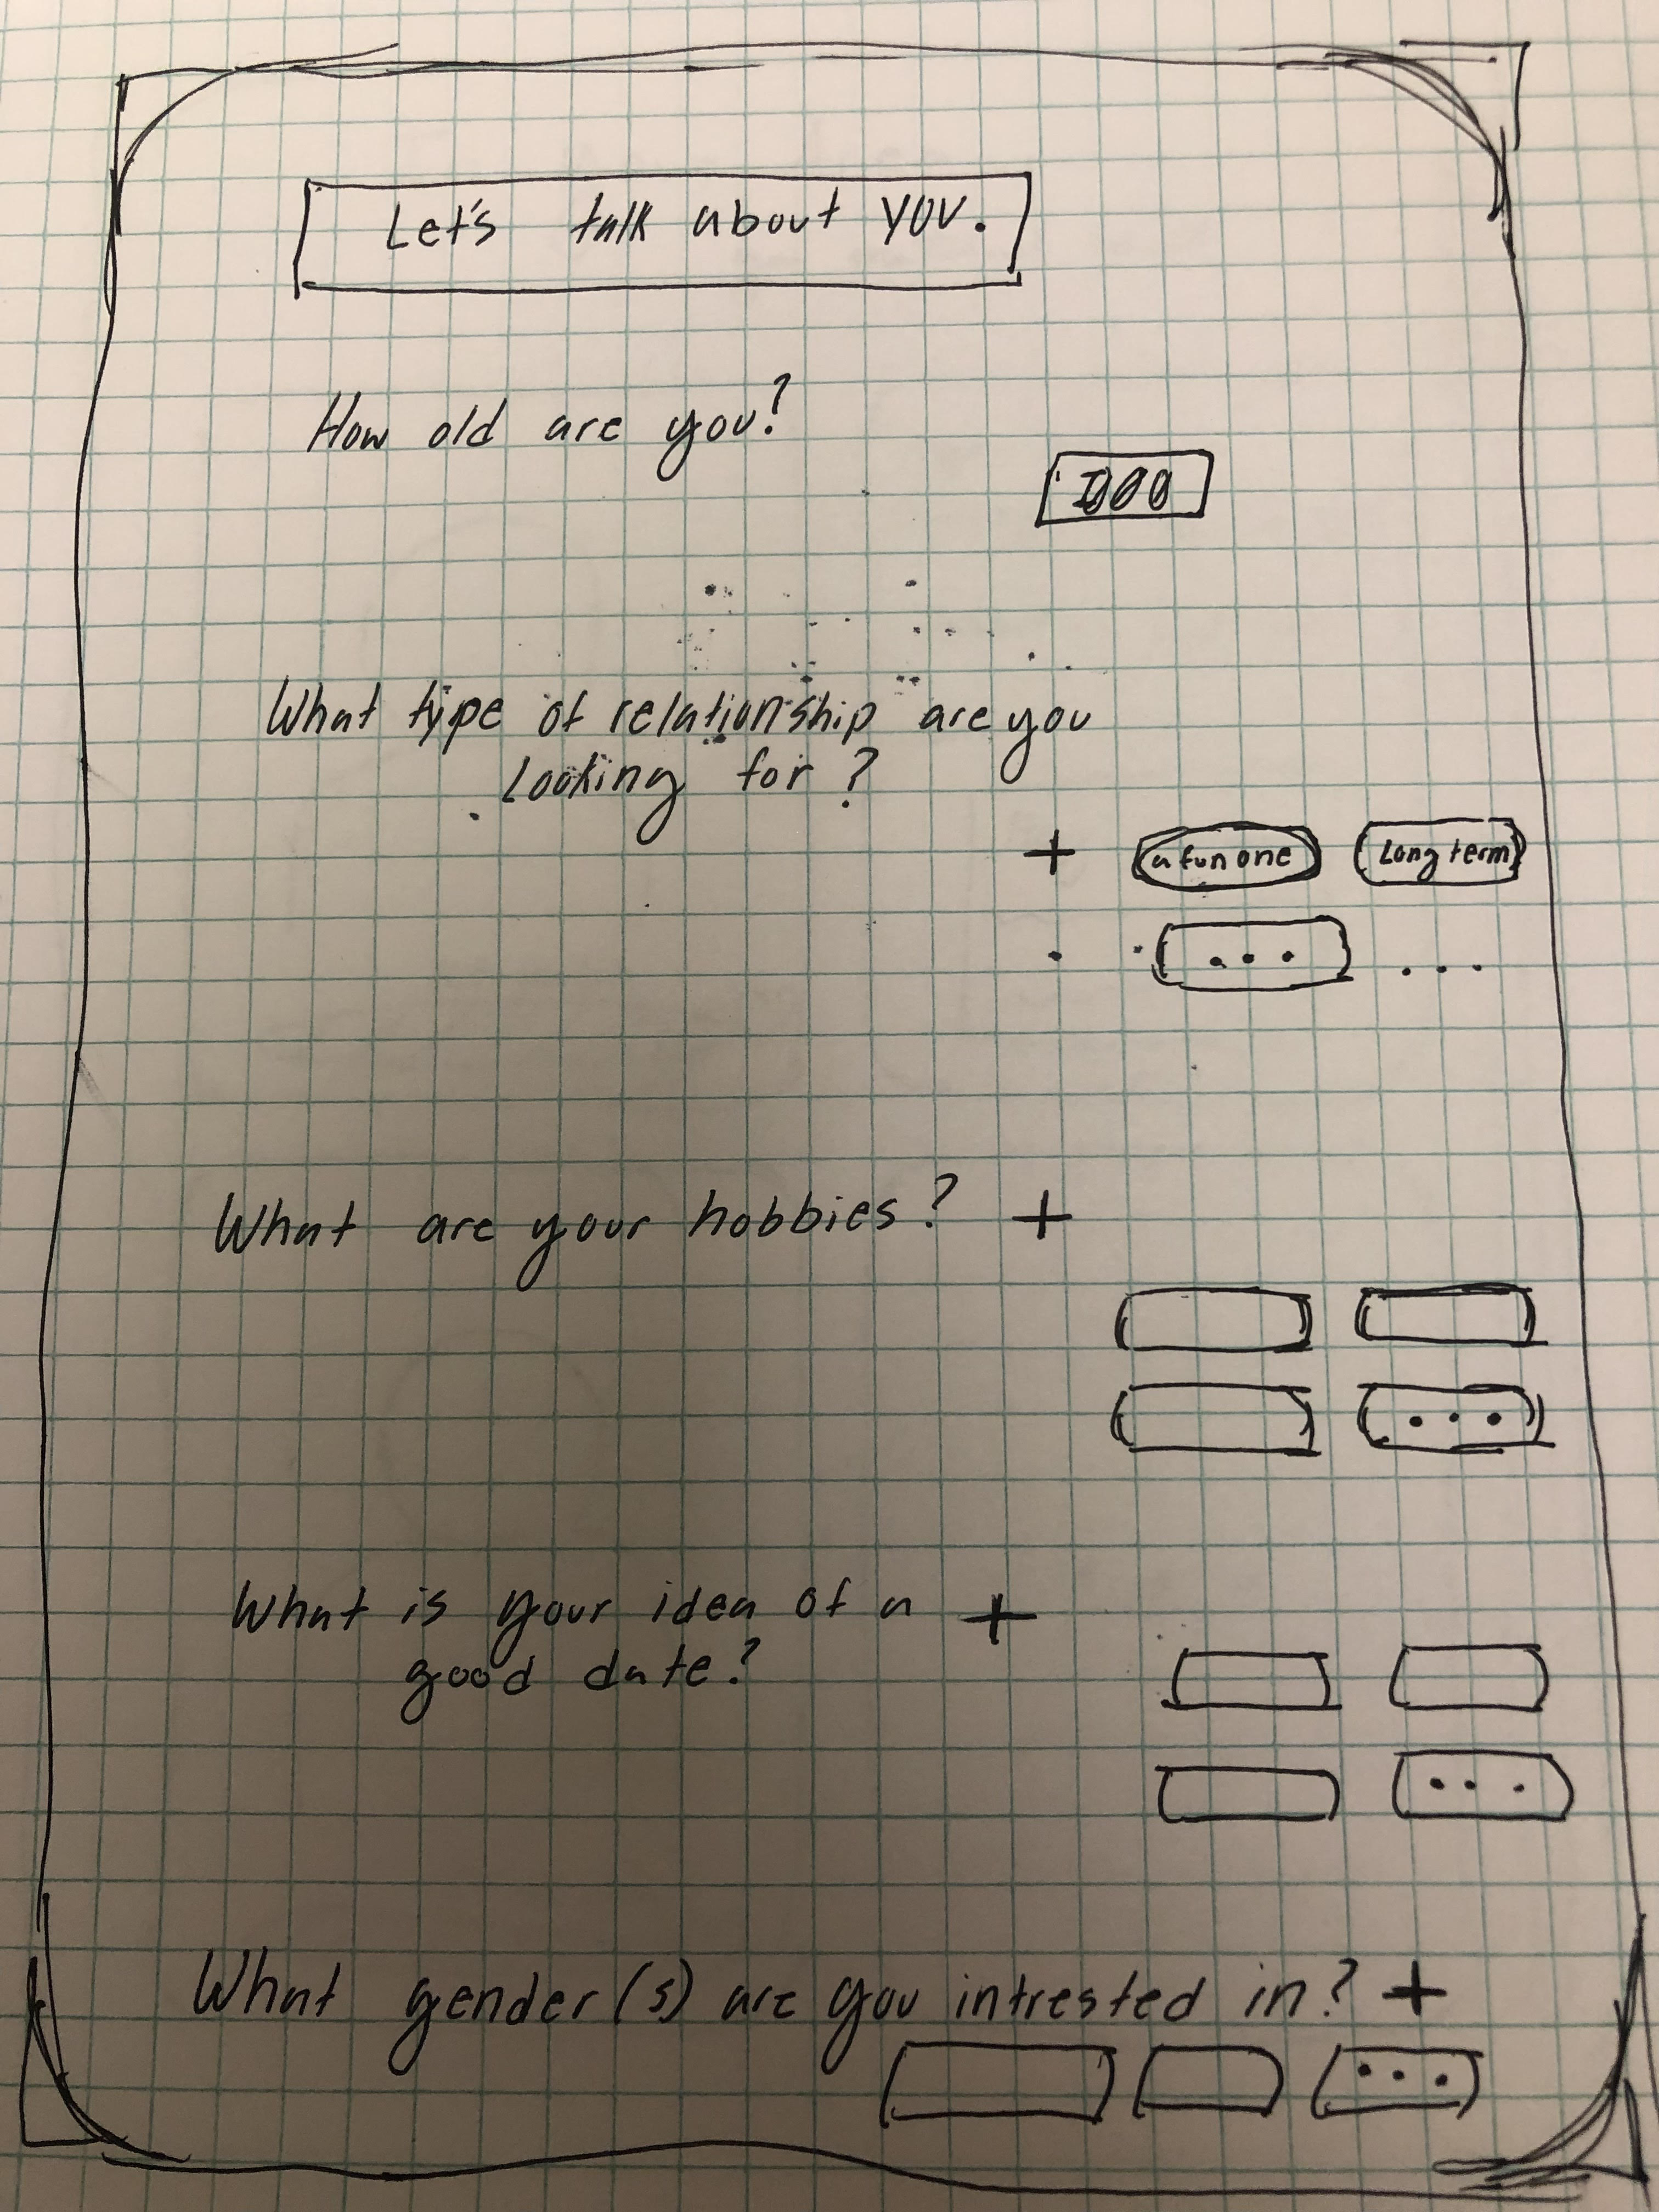 Let's talk about YOU.
How old are you?
What type of relationship are you
Looking for?
+ a fun one Long term
... ...
What are your hobbies? +
...
What is your idea of a +
good date?
...
What gender(s) are you intrested in? +
...